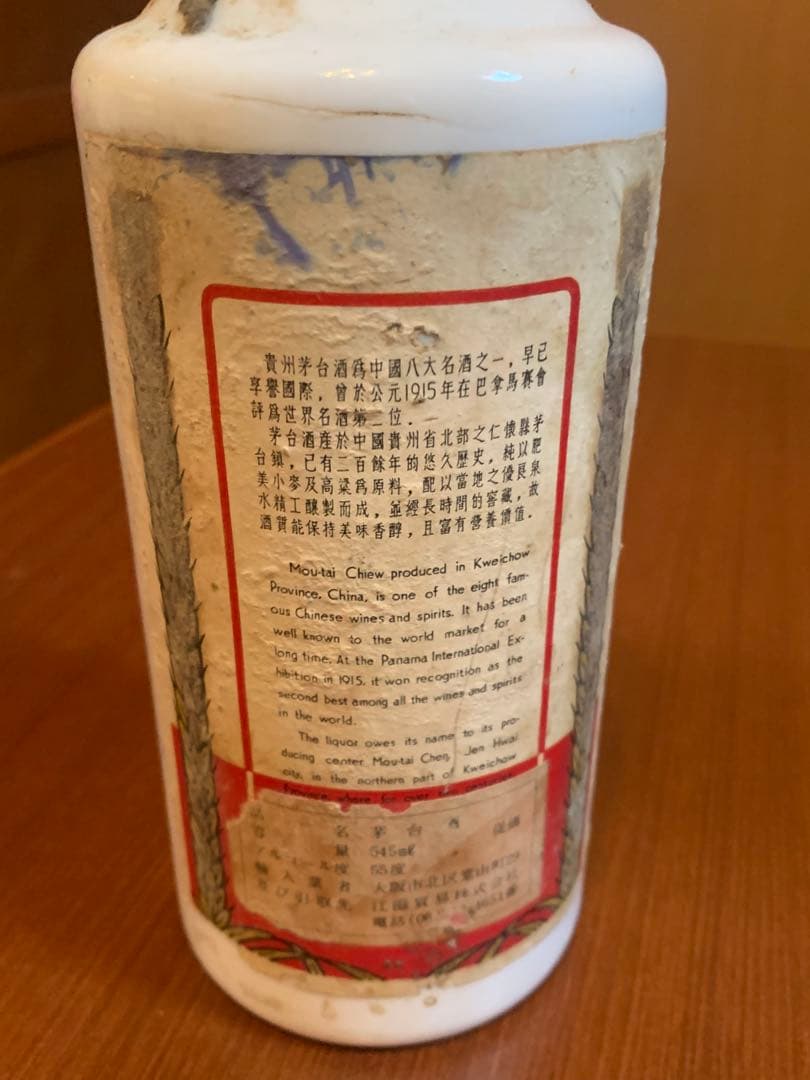 貴州茅台酒為中國八大名酒之一，早已
享譽國際，曾於公元1915年在巴拿馬賽會
評為世界名酒第二位．
茅台酒產於中國貴州省北部之仁懷縣茅
台鎮，已有二百餘年的悠久歷史，純以肥
美小麥及高粱為原料，配以當地之優良泉
水精工釀製而成，並經長時間的窖藏，故
酒質能保持美味香醇，且富有營養價值．
Mou-tai Chiew produced in Kweichow
Province, China, is one of the eight fam-
ous Chinese wines and spirits. It has been
well known to the world market for a
long time. At the Panama International Ex-
hibition in 1915, it won recognition as the
second best among all the wines and spirits
in the world.
The liquor owes its name to its pro-
ducing center Mou-tai Chen, Jen Hwai
city, in the northern part of Kweichow
Province where for over two centuries
品名 茅台酒
容量 545mℓ
アルコール度 55度
輸入業者 大阪市北区
及び引取先 江商貿易株式会社
電話(06